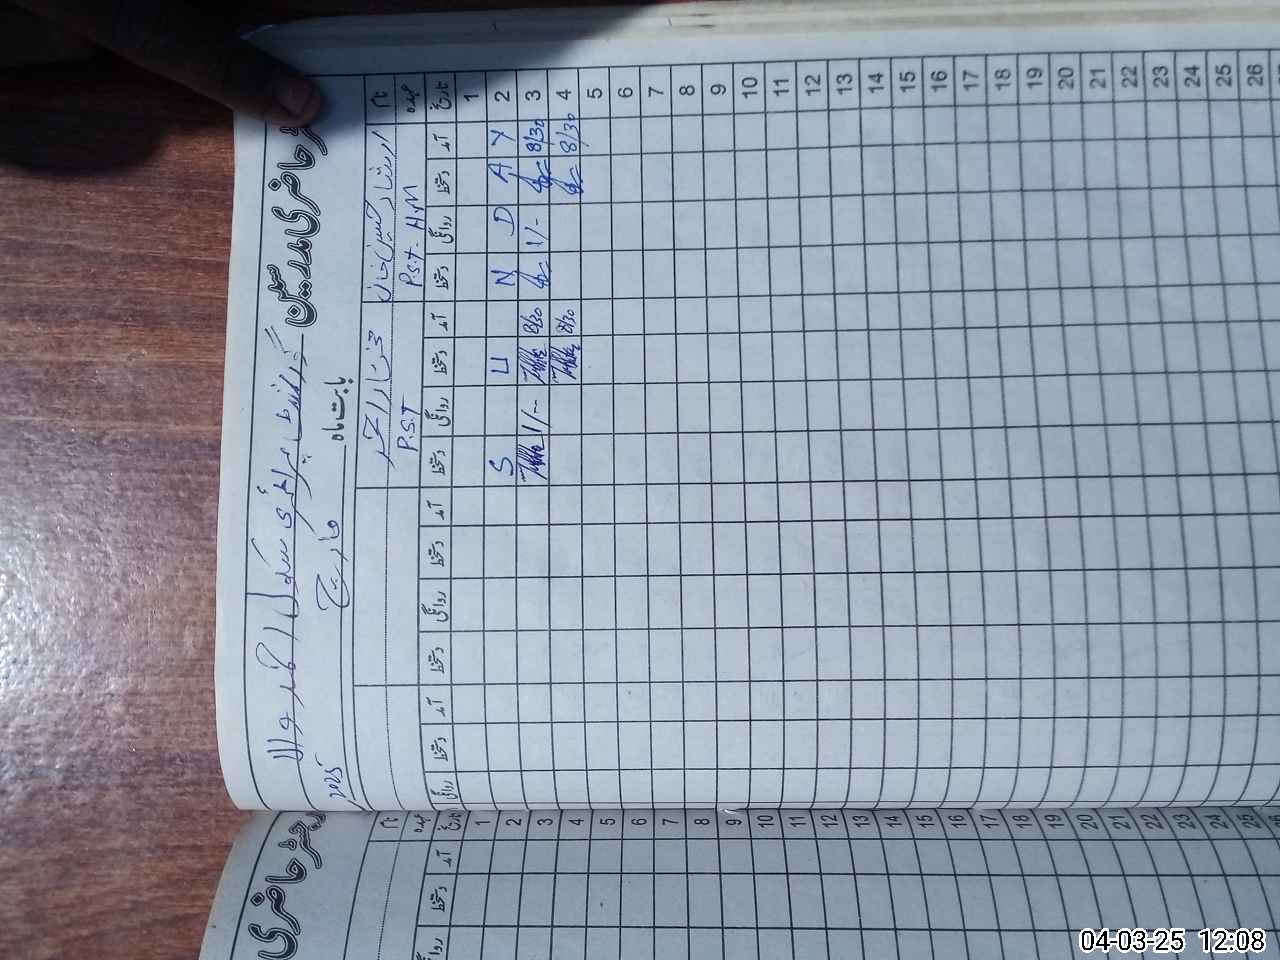 رجسٹر حاضری مدرسین
گورنمنٹ پرائمری سکول
بابت ماہ مارچ 2025
نام ارشاد حسین خان
عہدہ P.S.T - H.M P.S.T
تاریخ آمد دستخط روانگی دستخط آمد دستخط روانگی دستخط آمد دستخط روانگی دستخط آمد دستخط روانگی
1
2 Y A D N U S
3 8/30 1/- 8/30 1/-
4 8/30 8/30
5
6
7
8
9
10
11
12
13
14
15
16
17
18
19
20
21
22
23
24
25
26
رجسٹر حاضری
نام
عہدہ
تاریخ آمد دستخط روانگی
1
2
3
4
5
6
7
8
9
10
11
12
13
14
15
16
17
18
19
20
21
22
23
24
25
26
04-03-25 12:08